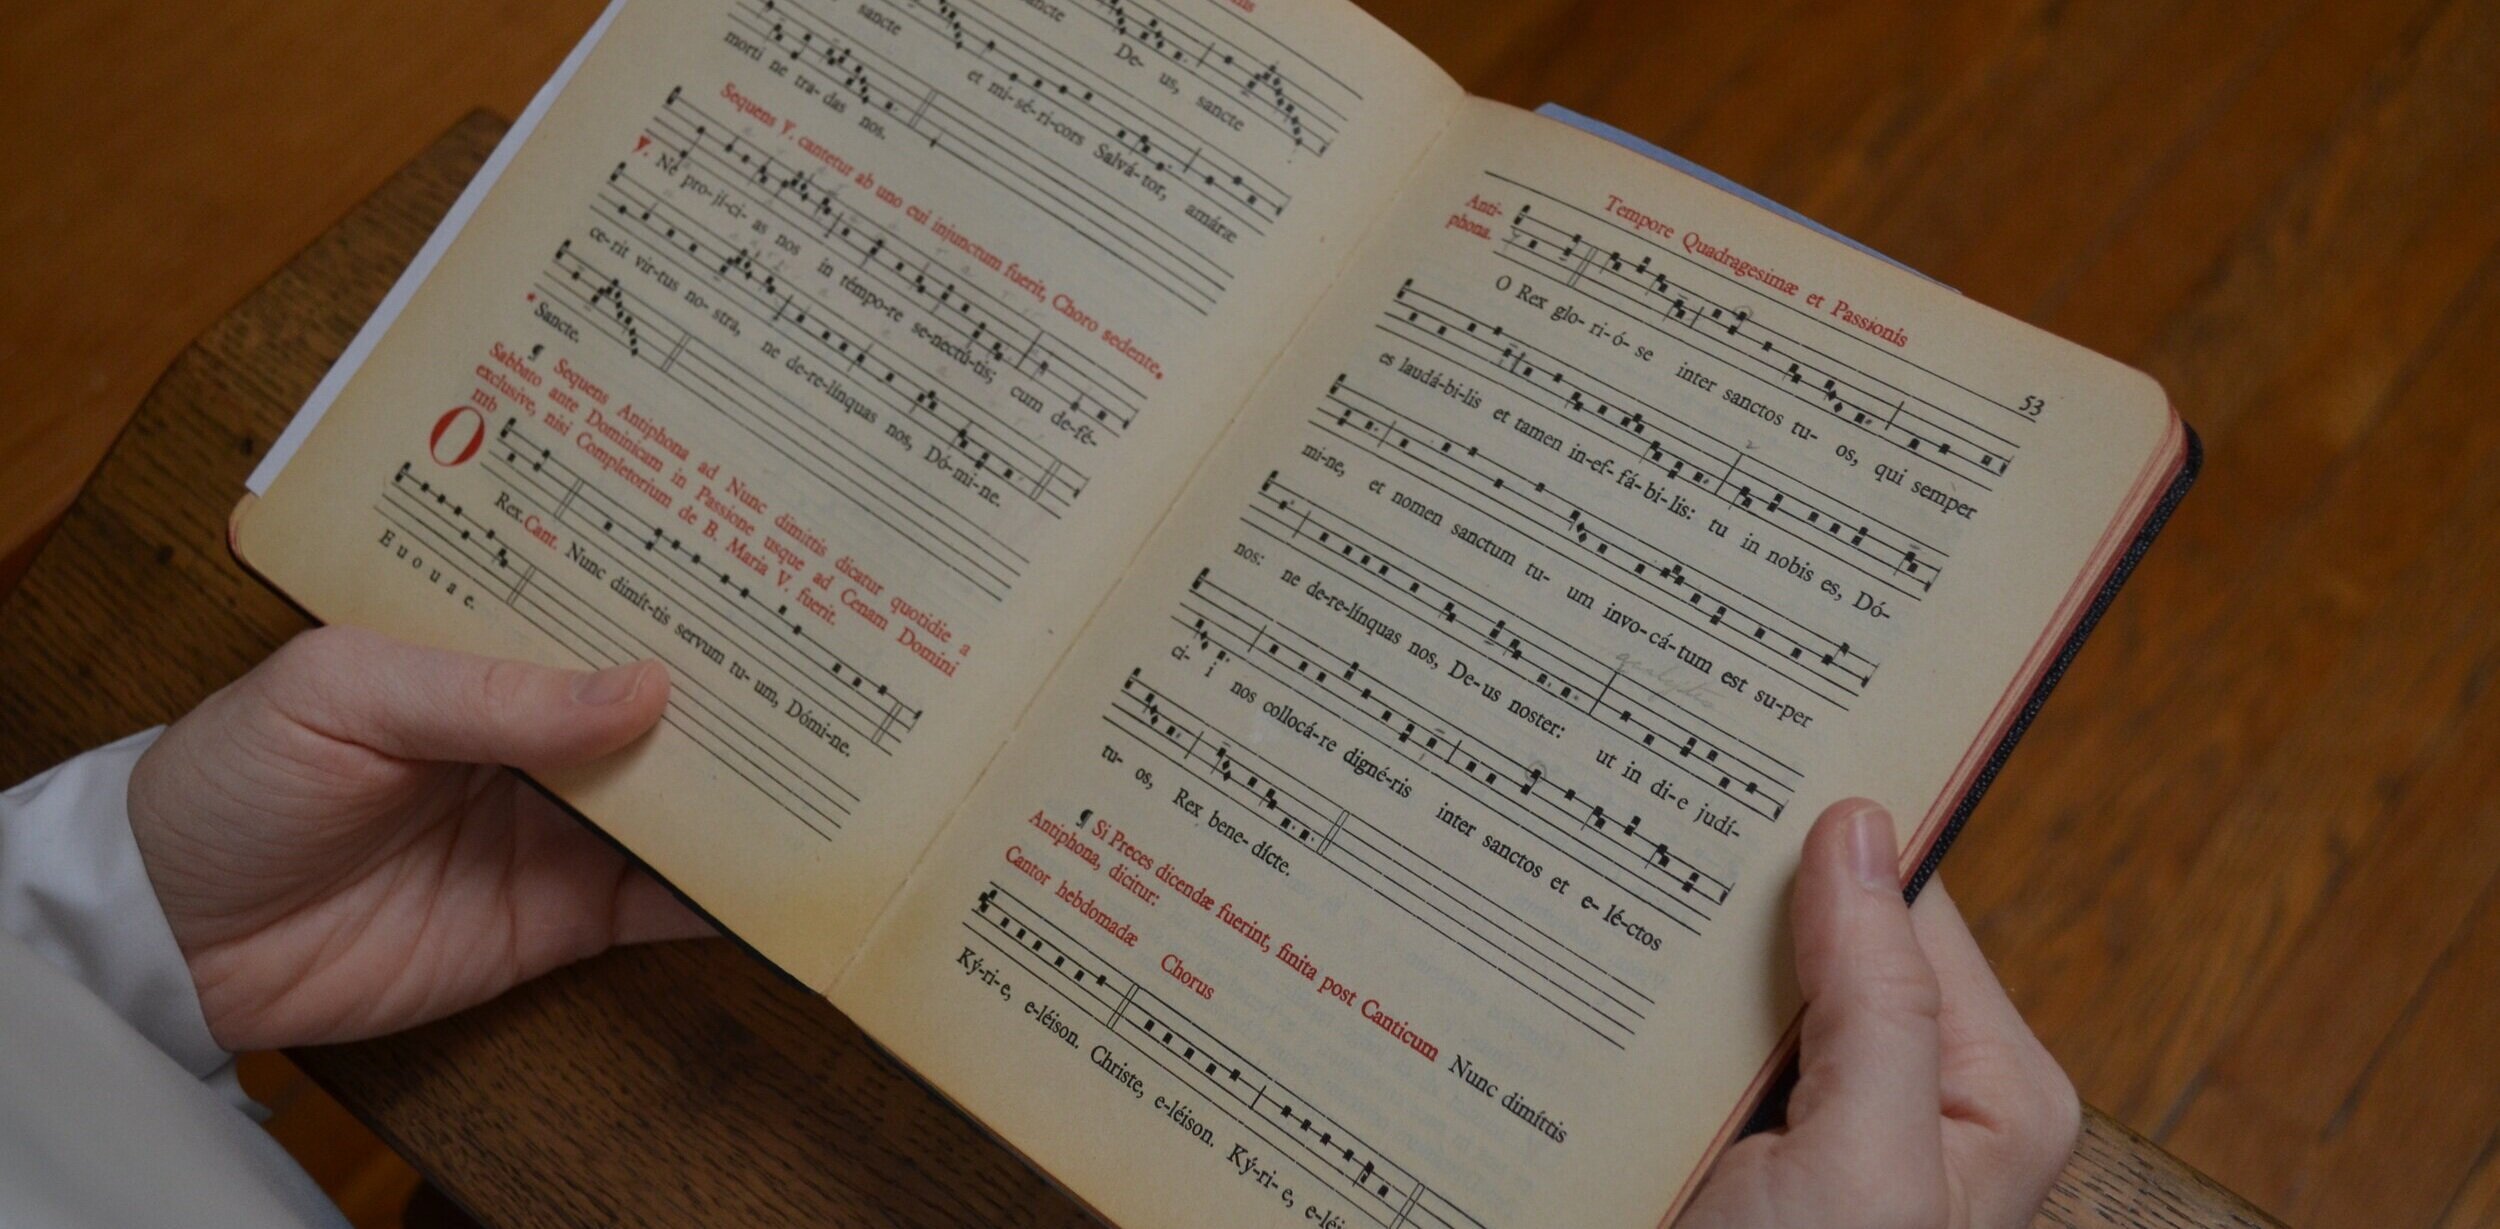 sancte De- us, sancte
sancte et mi-sé-ri-cors Salvá-tor, amáræ
morti ne tra- das nos.
Sequens ℣. cantetur ab uno cui injunctum fuerit, Choro sedente.
℣. Ne pro-jí-ci- as nos in témpo-re se-nectú-tis; cum de-fé-
ce-rit vir-tus no- stra, ne de-re-línquas nos, Dó-mi-ne.
* Sancte.
¶ Sequens Antiphona ad Nunc dimittis dicatur quotidie a
Sabbato ante Dominicam in Passione usque ad Cenam Domini
exclusive, nisi Completorium de B. Maria V. fuerit.
IIIb
O Rex. Cant. Nunc dimít-tis servum tu- um, Dómi-ne.
E u o u a e.
Tempore Quadragesimæ et Passionis 53
Anti-
phona.
O Rex glo- ri-ó- se inter sanctos tu- os, qui semper
es laudá-bi-lis et tamen in-ef- fá- bi-lis: tu in nobis es, Dó-
mi-ne, et nomen sanctum tu- um invo-cá-tum est su-per
nos: ne de-re-línquas nos, De-us noster: ut in di-e judí-
ci- i nos collocá-re digné-ris inter sanctos et e- lé-ctos
tu- os, Rex bene- dícte.
¶ Si Preces dicendæ fuerint, finita post Canticum Nunc dimíttis
Antiphona, dicitur:
Cantor hebdomadæ Chorus
Ký-ri-e, e-léison. Christe, e-léison. Ký-ri- e, e-léi